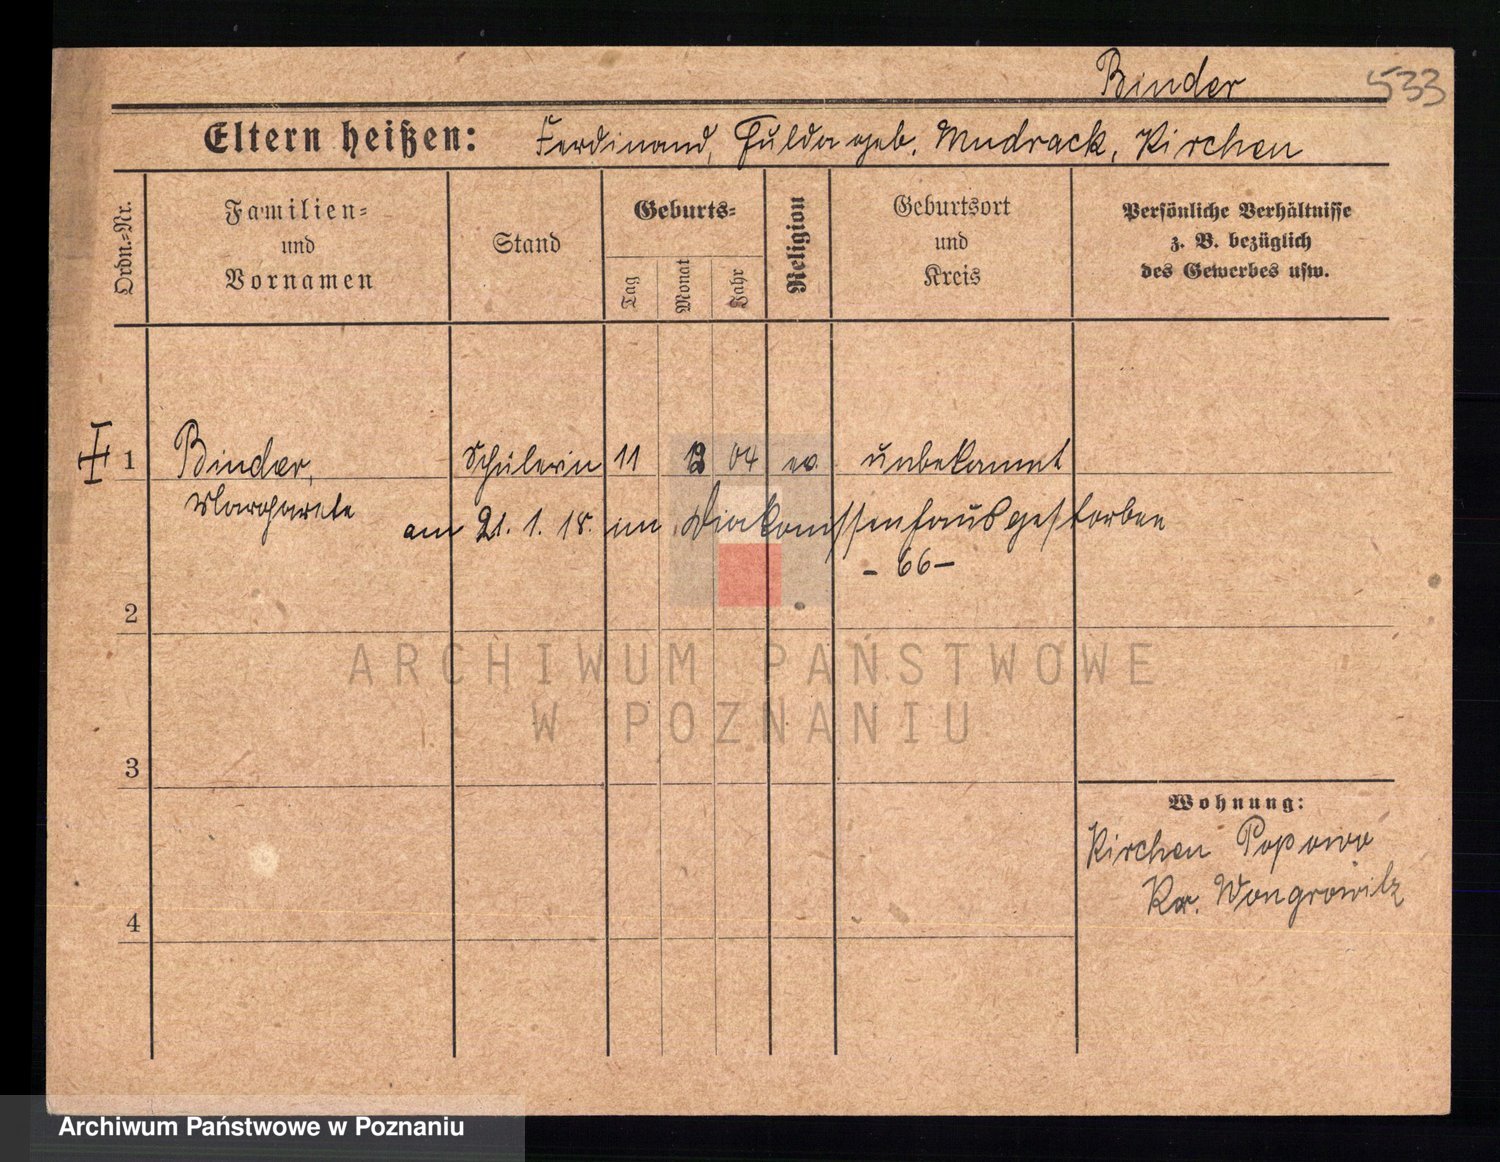 Binder 533
Eltern heißen: Ferdinand, Hulda geb. Mudrack, Kirchen
Ordn.=Nr.
Familien=
und
Vornamen
Stand
Geburts=
Tag
Monat
Jahr
Religion
Geburtsort
und
Kreis
Persönliche Verhältnisse
z. B. bezüglich
des Gewerbes usw.
1 Binder, Schülerin 11 04 ev. unbekannt
Margarete
am 21. 1. 18. im Diakonissenhaus gestorben
- 66 -
2
ARCHIWUM PAŃSTWOWE
W POZNANIU
3
Wohnung:
Kirchen Popowo
Kr. Wongrowitz
4
Archiwum Państwowe w Poznaniu